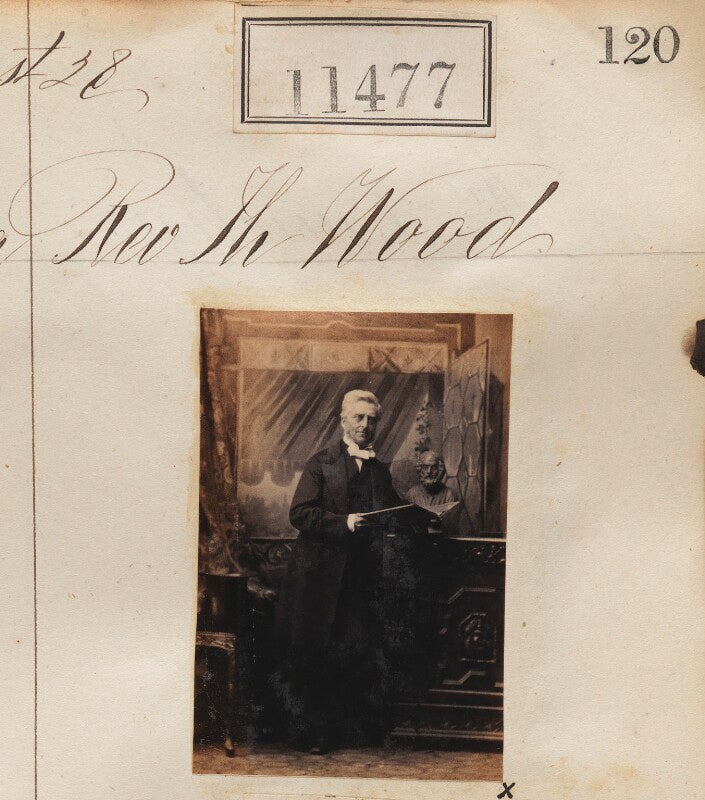 120
st 28
11477
Rev Th Wood
x